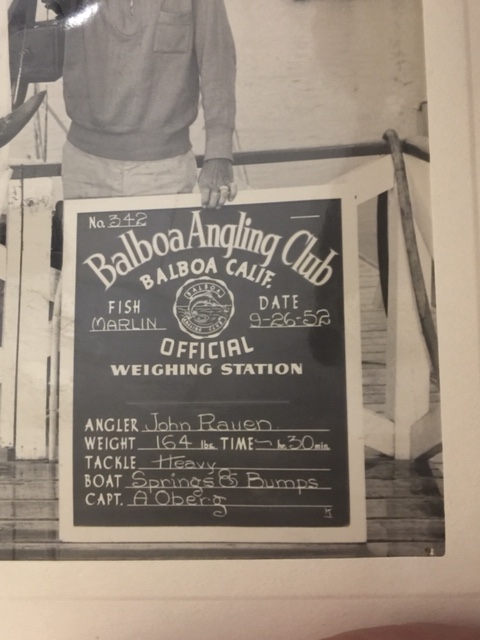 No. 342
Balboa Angling Club
BALBOA CALIF.
FISH
MARLIN
BALBOA
ANGLING CLUB
DATE
9-26-52
OFFICIAL
WEIGHING STATION
ANGLER John Rauen
WEIGHT 164 lbs. TIME — hr. 30 min.
TACKLE Heavy
BOAT Springs & Bumps
CAPT. A Oberg